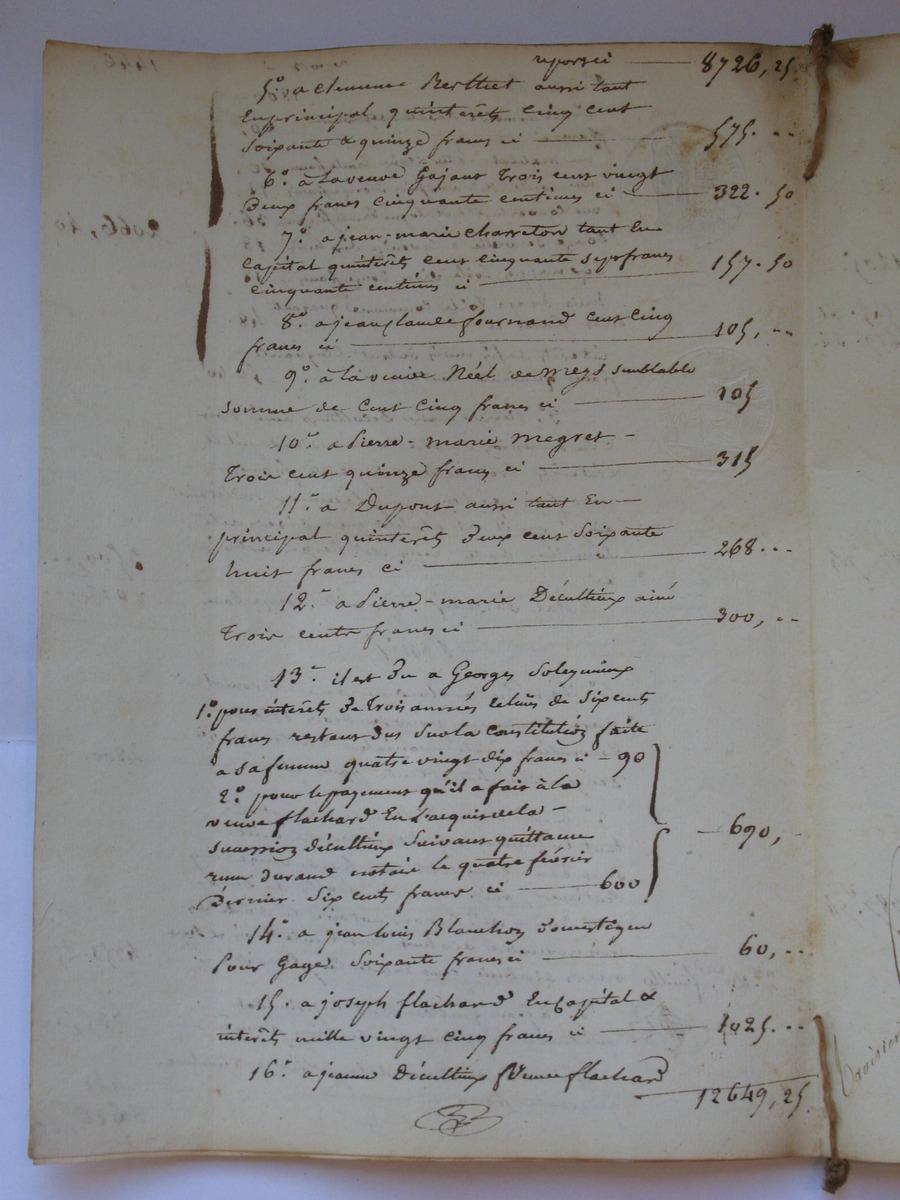 report ci — 8726, 25
5.º a clemence Berthet aussi tant
En principal qu'interêts cinq cent
soixante & quinze francs ci — 575. ..
6.º à La veuve Gajant Trois cent vingt
Deux francs cinquante centimes ci — 322. 50
7.º a jean-marie charreton tant En
Capital qu'interêts cent cinquante sept francs
cinquante centimes ci — 157. 50
8.º a jean claude fournand cent cinq
francs ci — 105, ..
9.º à la veuve Néel de meys semblable
somme de Cent Cinq francs ci — 105
10.º a Pierre-marie megret -
Trois cent quinze francs ci — 315
11.º a Dupont aussi tant En -
principal qu'interêts Deux cent soixante
huit francs ci — 268. ..
12.º a Pierre-marie Décultieux ainé
Trois cents francs ci — 300, ..
13.º il est Du a Georges Soleymieux
1.º pour interêts De Trois années de six cents
francs restant dus sur la Constitution faite
a sa femme quatre vingt dix francs ci - 90
2.º pour le payement qu'il a fait à la
veuve flachard En l'acquis de la -
succession décultieux suivant quittance
reçue durand notaire le quatre février
Dernier six cents francs ci — 600
— 690, -
14.º a jean louis Blanchon Domestique
Pour Gage soixante francs ci — 60, ..
15. a joseph flachard En Capital &
interêts mille vingt cinq francs ci — 1025. ..
16.º a jeanne Décultieux veuve flachard
12649, 25